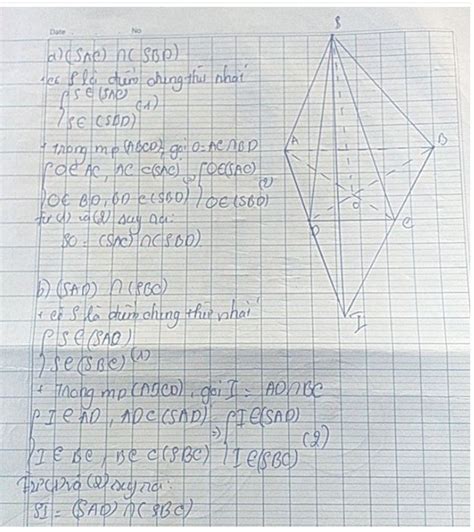 Date. No
a) (SAC) ∩ (SBD)
+ có S là điểm chung thứ nhất
{ S ∈ (SAC)
{ S ∈ (SBD) (1)
+ Trong mp (ABCD), gọi O = AC ∩ BD
{ O ∈ AC, AC ⊂ (SAC) ⇒ { O ∈ (SAC)
{ O ∈ BD, BD ⊂ (SBD) { O ∈ (SBD) (2)
từ (1) và (2) suy ra:
SO = (SAC) ∩ (SBD)
b) (SAD) ∩ (SBC)
+ có S là điểm chung thứ nhất
{ S ∈ (SAD)
{ S ∈ (SBC) (1)
+ Trong mp (ABCD), gọi I = AD ∩ BC
{ I ∈ AD, AD ⊂ (SAD) ⇒ { I ∈ (SAD)
{ I ∈ BC, BC ⊂ (SBC) { I ∈ (SBC) (2)
Từ (1) và (2) suy ra:
SI = (SAD) ∩ (SBC)
S
A
B
O
D
C
I